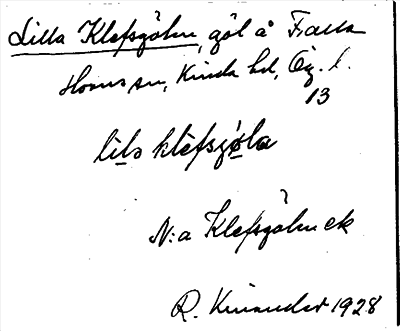 Lilla Klefsgölen, göl å Falla
Horns sn, Kinda hd, Ög. l.
13
lila klefsgöla
N:a Klefsgölen ek
R. Kinander 1928